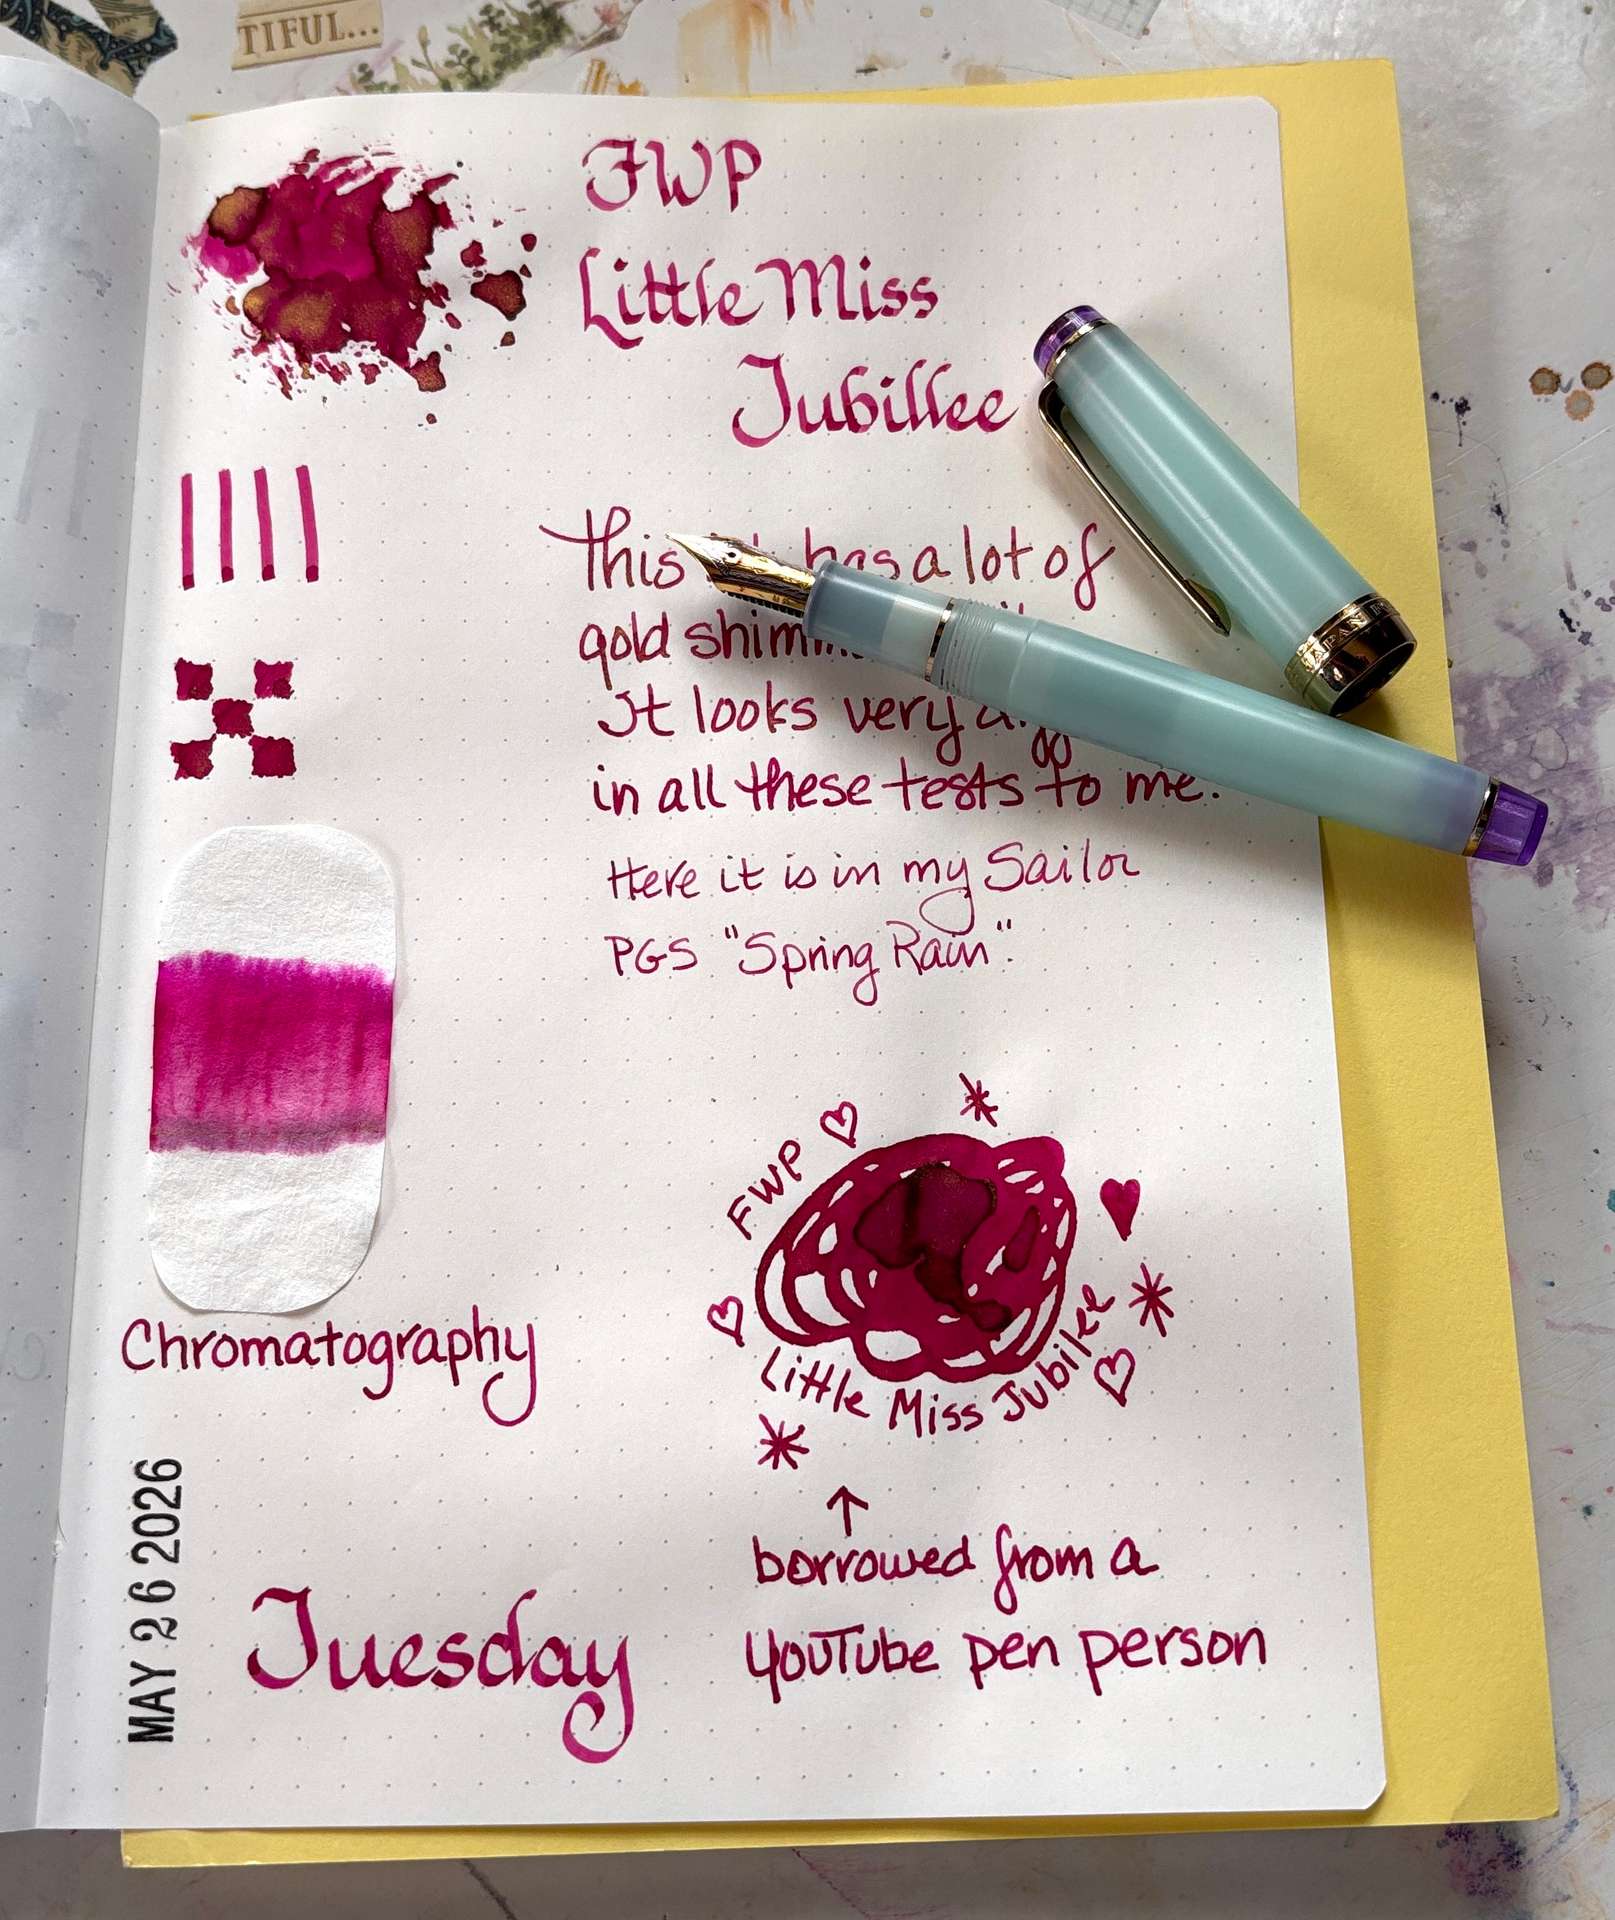 TIFUL...
FWP
Little Miss
Jubillee
This has a lot of
gold
It looks very
in all these tests to me.
Here it is in my Sailor
PGS "Spring Rain".
JAPAN
FWP
Little Miss Jubilee
Chromatography
↑
borrowed from a
YouTube pen person
MAY 26 2026
Tuesday